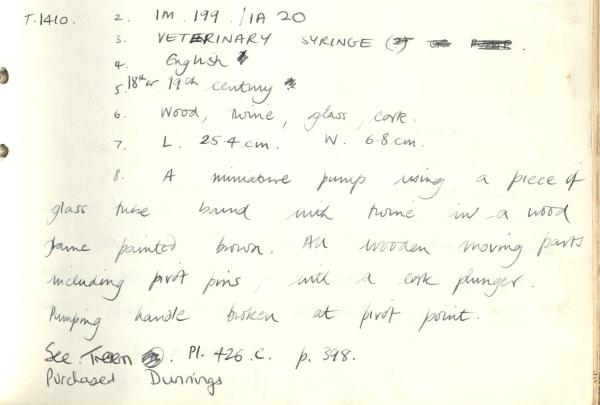 T.1410. 2. IM. 199. / IA 20
3. VETERINARY SYRINGE (?) or
4. English
5. 18th or 19th century
6. Wood, twine, glass, cork.
7. L. 25.4 cm. W. 6.8 cm.
8. A miniature pump using a piece of
glass tube bound with twine in a wood
frame painted brown. All wooden moving parts
including pivot pins, with a cork plunger.
Pumping handle broken at pivot point.
See. Pl. 426. C. p. 398.
Purchased Dunnings